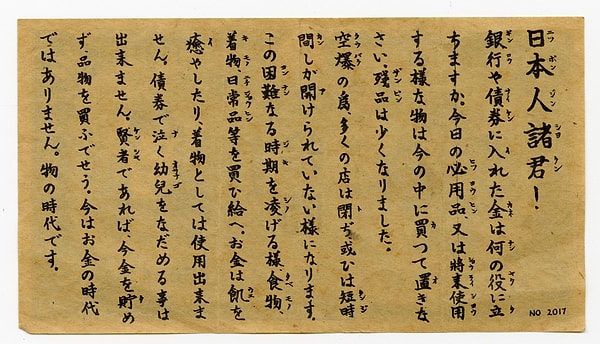 日本人諸君!
銀行や債券に入れた金は何の役に立
ちますか。今日の必用品又は將来使用
する様な物は今の中に買つて置きな
さい、残品は少くなりました。
空爆の為、多くの店は閉ぢ、或ひは短時
間しか開けられていない様になります。
この困難なる時期を凌げる様、食物、
着物日常品等を買ひ給へ、お金は飢を
癒やしたり、着物としては使用出来ま
せん、債券で泣く幼児をなだめる事は
出来ません、賢者であれば、今金を貯め
ず、品物を買ふでせう。今はお金の時代
ではありません。物の時代です。
NO 2017